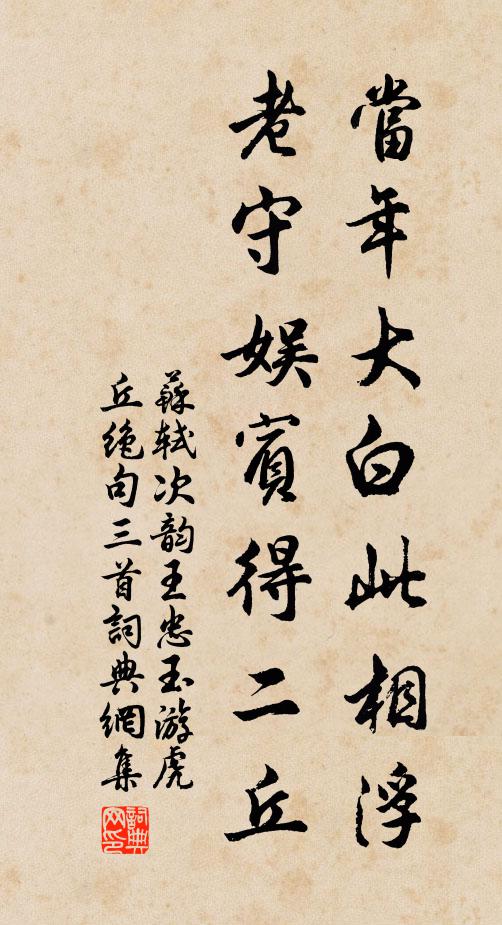 當年大白此相浮
老守娱賓得二丘
蘇軾次韵王忠玉游虎
丘絶句三首詞典網集
詞典网印